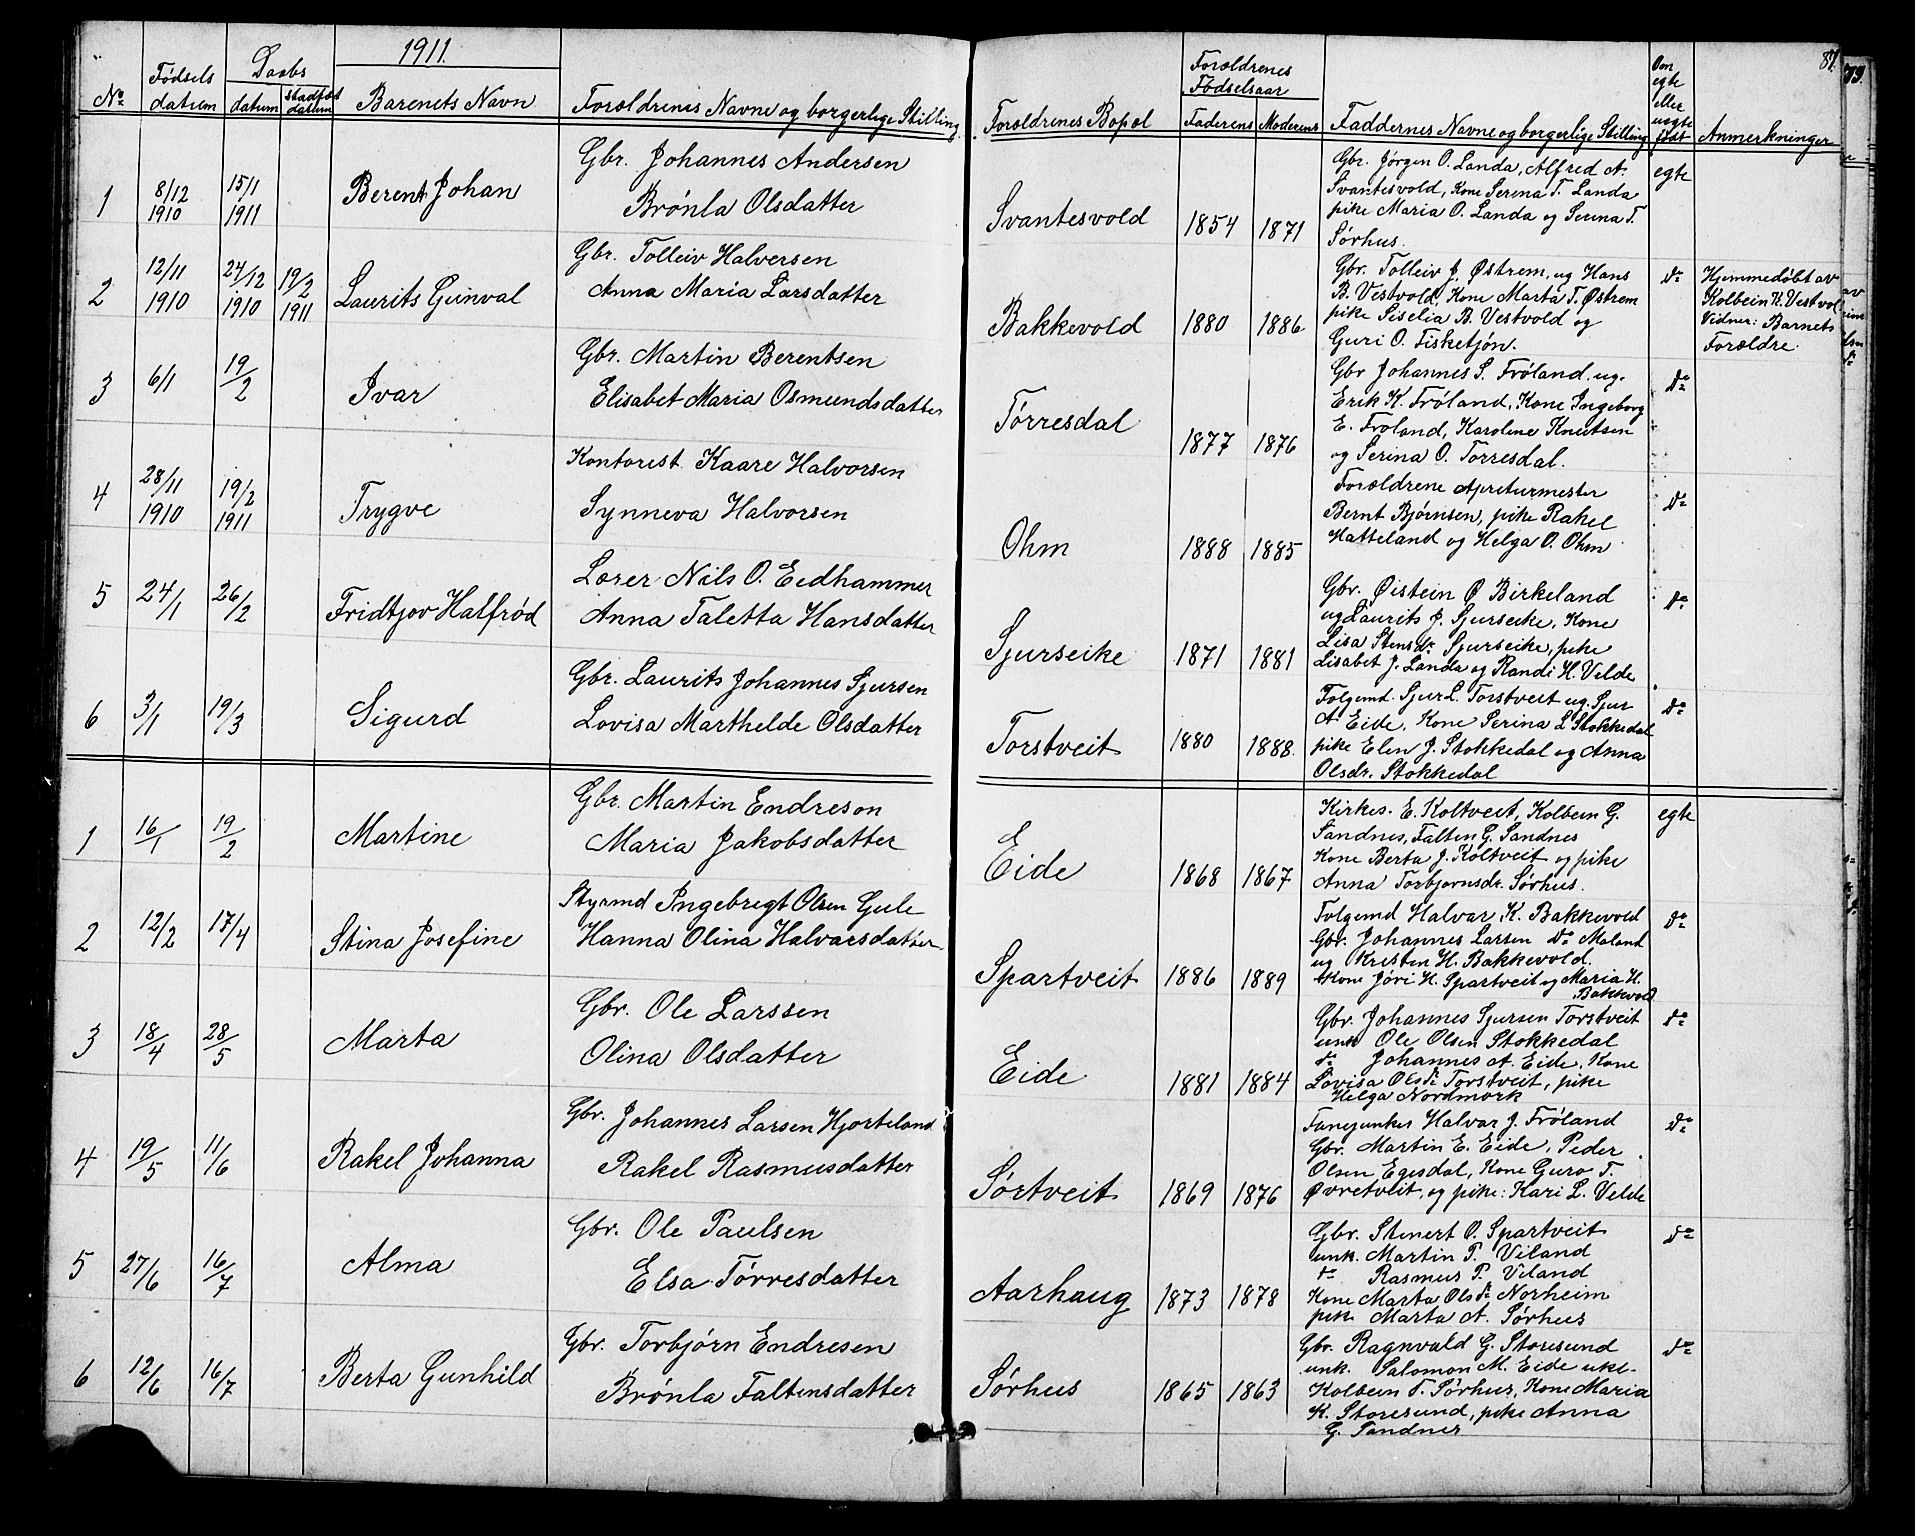 1911.
81.
79.
No
Fødsels datum
Daabs
datum
stadfæst datum
Barenets Navn
Foroldrenes Navne og borgerlige Stilling
Foroldrenes Bopæl
Foroldrenes Fødselsaar
Faderens
Moderens
Faddernes Navne og borgerlige Stilling
Om egte eller uegte født
Anmerkninger
1
8/12 1910
15/1 1911
Berent Johan
Gbr. Johannes Andersen
Brónla Olsdatter
Svantesvold
1854
1871
Gbr. Jørgen O. Landa, Alfred A.
Svantesvold, Kone Serina T. Landa
pike Maria O. Landa og Serina T.
Sørhus.
egte
2
12/11 1910
24/12 1910
19/2 1911
Laurits Gunval
Gbr. Tolleiv Halversen
Anna Maria Larsdatter
Bakkevold
1880
1886
Gbr. Tolleiv J. Østrem, ug Hans
B. Vestvold, Kone Marta T. Østrem
pike Siselia B. Vestvold og
Guri O. Fisketjøn.
do
Hjemmedøbt av
Kolbein K. Vestvol
Vidner: Barnets
Forældre.
3
6/1
19/2
Ivar
Gbr. Martin Berentsen
Elisabet Maria Osmundsdatter
Tórresdal
1877
1876
Gbr Johannes S. Fróland, ug.
Erik K. Fróland, Kone Ingeborg
E. Froland, Karoline Knutsen
og Serina O. Torresdal.
do
4
28/11 1910
19/2 1911
Trygve
Kontorest Kaare Halvorsen
Synneva Halvorsen
Ohm
1888
1885
Foroldrene Apreturmester
Bernt Bjørnsen, pike Rakel
Hatteland og Helga O. Ohm
do
5
24/1
26/2
Fridtjov Halfród
Lærer Nils O. Eidhammer
Anna Taletta Hansdatter
Sjurseike
1871
1881
Gbr. Øistein Ø Birkeland
ug Laurits J. Sjurseike, Kone
Lisa Stensdr. Sjurseike, pike
Lisabet J. Landa og Randi H. Velde
do
6
3/1
19/3
Sigurd
Gbr. Laurits Johannes Sjursen
Lovisa Marthelde Olsdatter
Torstveit
1880
1888.
Folgemd. Sjur L. Torstveit ug. Sjur
A. Eide, Kone Serina L Stokkedal
pike Elen J. Stokkedal og Anna
Olsdr. Stokkedal
do
1
16/1
19/2
Martine
Gbr. Martin Endreson
Maria Jakobsdatter
Eide
1868
1867
Kirkes. E. Koltveit, Kolbein G.
Sandnes, Falten G. Sandnes
Kone Berta J. Koltveit og pike
Anna Torbjornsdr. Sørhus.
egte
2
12/2
17/4
Stina Josefine
Styrmd Ingebregt Olsen Gule
Hanna Olina Halvarsdatter
Spartveit
1886
1889
Folgemd Halvar K. Bakkevold
Gbr. Johannes Larsen do Maland
ug Kristen H. Bakkevold.
Kone Jóri H. Spartveit og Maria H.
Bakkvold
do
3
18/4
28/5
Marta
Gbr. Ole Larssen
Olina Olsdatter
Eide
1881
1884
Gbr. Johannes Sjursen Torstveit
unk Ole Olsen Stokkedal
do Johannes A. Eide, Kone
Lovisa Olsdr Torstveit, pike
Helga Nordmork
do
4
19/5
11/6
Rakel Johanna
Gbr. Johannes Larsen Hjorteland
Rakel Rasmusdatter
Sórtveit
1869
1876
Fanejunker Halvar J. Fróland
Gbr. Martin E. Eide, Peder
Olsen Egesdal, Kone Guro T.
Øvretveit, og pike: Kari L. Velde
do
5
27/6
16/7
Alma
Gbr. Ole Paulsen
Elsa Tórresdatter
Aarhaug
1873
1878
Gbr. Stenert O. Spartveit
unk. Martin T. Viland
do Rasmus P. Viland
Kone Marta Olsdr Norheim
pike Marta A. Sørhus
do
6
12/6
16/7
Berta Gunhild
Gbr. Torbjørn Endresen
Brónla Faltensdatter
Sórhus
1865
1863
Gbr. Ragnvald G. Storesund
unk. Salomon M. Eide ukl.
Kolbein T. Sørhus, Kone Maria
K. Storesund, pike Anna
G. Sandnes
do